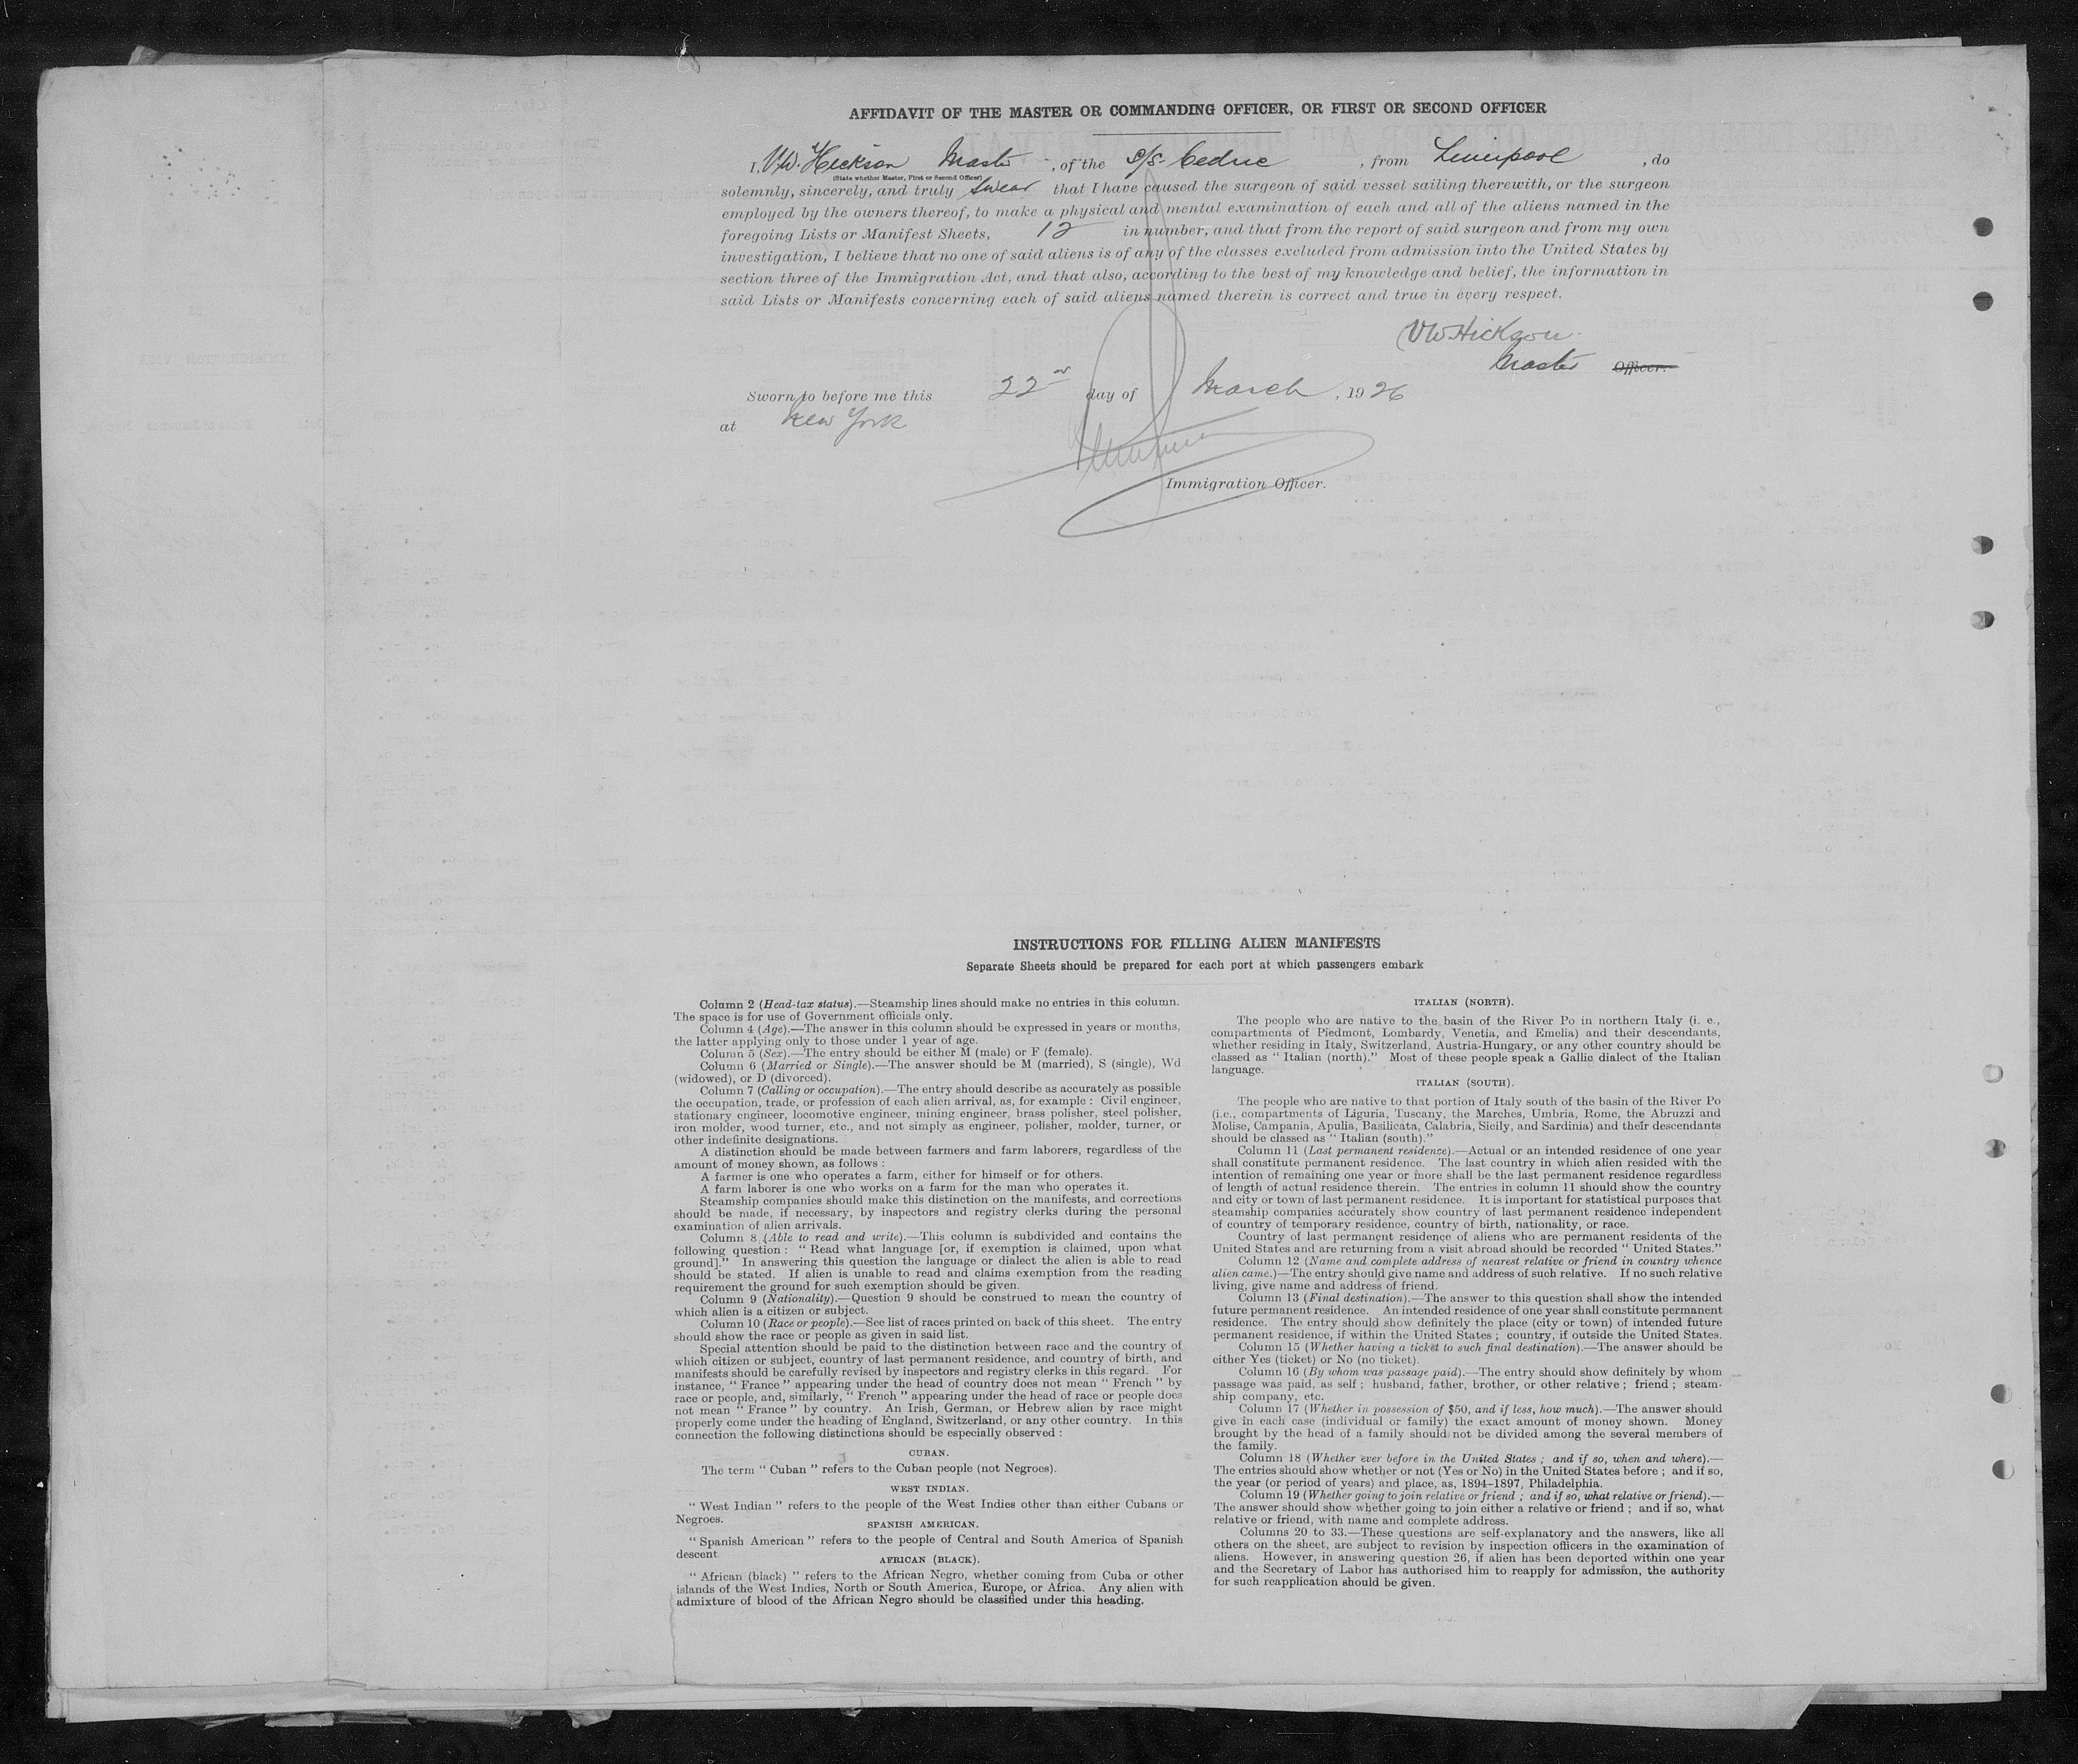 AFFIDAVIT OF THE MASTER OR COMMANDING OFFICER, OR FIRST OR SECOND OFFICER
I, V.W. Hickson Master, of the S/S. Cedric, from Liverpool, do
(State whether Master, First or Second Officer)
solemnly, sincerely, and truly swear that I have caused the surgeon of said vessel sailing therewith, or the surgeon
employed by the owners thereof, to make a physical and mental examination of each and all of the aliens named in the
foregoing Lists or Manifest Sheets, 12 in number, and that from the report of said surgeon and from my own
investigation, I believe that no one of said aliens is of any of the classes excluded from admission into the United States by
section three of the Immigration Act, and that also, according to the best of my knowledge and belief, the information in
said Lists or Manifests concerning each of said aliens named therein is correct and true in every respect.
VW Hickson
Master Officer.
Sworn to before me this 22nd day of March, 1926
at New York
Immigration Officer.
INSTRUCTIONS FOR FILLING ALIEN MANIFESTS
Separate Sheets should be prepared for each port at which passengers embark
Column 2 (Head-tax status).—Steamship lines should make no entries in this column.
The space is for use of Government officials only.
Column 4 (Age).—The answer in this column should be expressed in years or months,
the latter applying only to those under 1 year of age.
Column 5 (Sex).—The entry should be either M (male) or F (female).
Column 6 (Married or Single).—The answer should be M (married), S (single), Wd
(widowed), or D (divorced).
Column 7 (Calling or occupation).—The entry should describe as accurately as possible
the occupation, trade, or profession of each alien arrival, as, for example : Civil engineer,
stationary engineer, locomotive engineer, mining engineer, brass polisher, steel polisher,
iron molder, wood turner, etc., and not simply as engineer, polisher, molder, turner, or
other indefinite designations.
A distinction should be made between farmers and farm laborers, regardless of the
amount of money shown, as follows :
A farmer is one who operates a farm, either for himself or for others.
A farm laborer is one who works on a farm for the man who operates it.
Steamship companies should make this distinction on the manifests, and corrections
should be made, if necessary, by inspectors and registry clerks during the personal
examination of alien arrivals.
Column 8 (Able to read and write).—This column is subdivided and contains the
following question : “ Read what language [or, if exemption is claimed, upon what
ground].” In answering this question the language or dialect the alien is able to read
should be stated. If alien is unable to read and claims exemption from the reading
requirement the ground for such exemption should be given.
Column 9 (Nationality).—Question 9 should be construed to mean the country of
which alien is a citizen or subject.
Column 10 (Race or people).—See list of races printed on back of this sheet. The entry
should show the race or people as given in said list.
Special attention should be paid to the distinction between race and the country of
which citizen or subject, country of last permanent residence, and country of birth, and
manifests should be carefully revised by inspectors and registry clerks in this regard. For
instance, “ France ” appearing under the head of country does not mean “ French ” by
race or people, and, similarly, “ French ” appearing under the head of race or people does
not mean “ France ” by country. An Irish, German, or Hebrew alien by race might
properly come under the heading of England, Switzerland, or any other country. In this
connection the following distinctions should be especially observed :
CUBAN.
The term “ Cuban ” refers to the Cuban people (not Negroes).
WEST INDIAN.
“ West Indian ” refers to the people of the West Indies other than either Cubans or
Negroes.
SPANISH AMERICAN.
“ Spanish American ” refers to the people of Central and South America of Spanish
descent
AFRICAN (BLACK).
“ African (black) ” refers to the African Negro, whether coming from Cuba or other
islands of the West Indies, North or South America, Europe, or Africa. Any alien with
admixture of blood of the African Negro should be classified under this heading.
ITALIAN (NORTH).
The people who are native to the basin of the River Po in northern Italy (i. e.,
compartments of Piedmont, Lombardy, Venetia, and Emelia) and their descendants,
whether residing in Italy, Switzerland, Austria-Hungary, or any other country should be
classed as “ Italian (north).” Most of these people speak a Gallic dialect of the Italian
language.
ITALIAN (SOUTH).
The people who are native to that portion of Italy south of the basin of the River Po
(i.e., compartments of Liguria, Tuscany, the Marches, Umbria, Rome, the Abruzzi and
Molise, Campania, Apulia, Basilicata, Calabria, Sicily, and Sardinia) and their descendants
should be classed as “ Italian (south).”
Column 11 (Last permanent residence).—Actual or an intended residence of one year
shall constitute permanent residence. The last country in which alien resided with the
intention of remaining one year or more shall be the last permanent residence regardless
of length of actual residence therein. The entries in column 11 should show the country
and city or town of last permanent residence. It is important for statistical purposes that
steamship companies accurately show country of last permanent residence independent
of country of temporary residence, country of birth, nationality, or race.
Country of last permanent residence of aliens who are permanent residents of the
United States and are returning from a visit abroad should be recorded “ United States.”
Column 12 (Name and complete address of nearest relative or friend in country whence
alien came.)—The entry should give name and address of such relative. If no such relative
living, give name and address of friend.
Column 13 (Final destination).—The answer to this question shall show the intended
future permanent residence. An intended residence of one year shall constitute permanent
residence. The entry should show definitely the place (city or town) of intended future
permanent residence, if within the United States ; country, if outside the United States.
Column 15 (Whether having a ticket to such final destination).—The answer should be
either Yes (ticket) or No (no ticket).
Column 16 (By whom was passage paid).—The entry should show definitely by whom
passage was paid, as self ; husband, father, brother, or other relative ; friend ; steam-
ship company, etc.
Column 17 (Whether in possession of $50, and if less, how much).—The answer should
give in each case (individual or family) the exact amount of money shown. Money
brought by the head of a family should not be divided among the several members of
the family.
Column 18 (Whether ever before in the United States ; and if so, when and where).—
The entries should show whether or not (Yes or No) in the United States before ; and if so,
the year (or period of years) and place, as, 1894–1897, Philadelphia.
Column 19 (Whether going to join relative or friend ; and if so, what relative or friend).—
The answer should show whether going to join either a relative or friend ; and if so, what
relative or friend, with name and complete address.
Columns 20 to 33.—These questions are self-explanatory and the answers, like all
others on the sheet, are subject to revision by inspection officers in the examination of
aliens. However, in answering question 26, if alien has been deported within one year
and the Secretary of Labor has authorised him to reapply for admission, the authority
for such reapplication should be given.